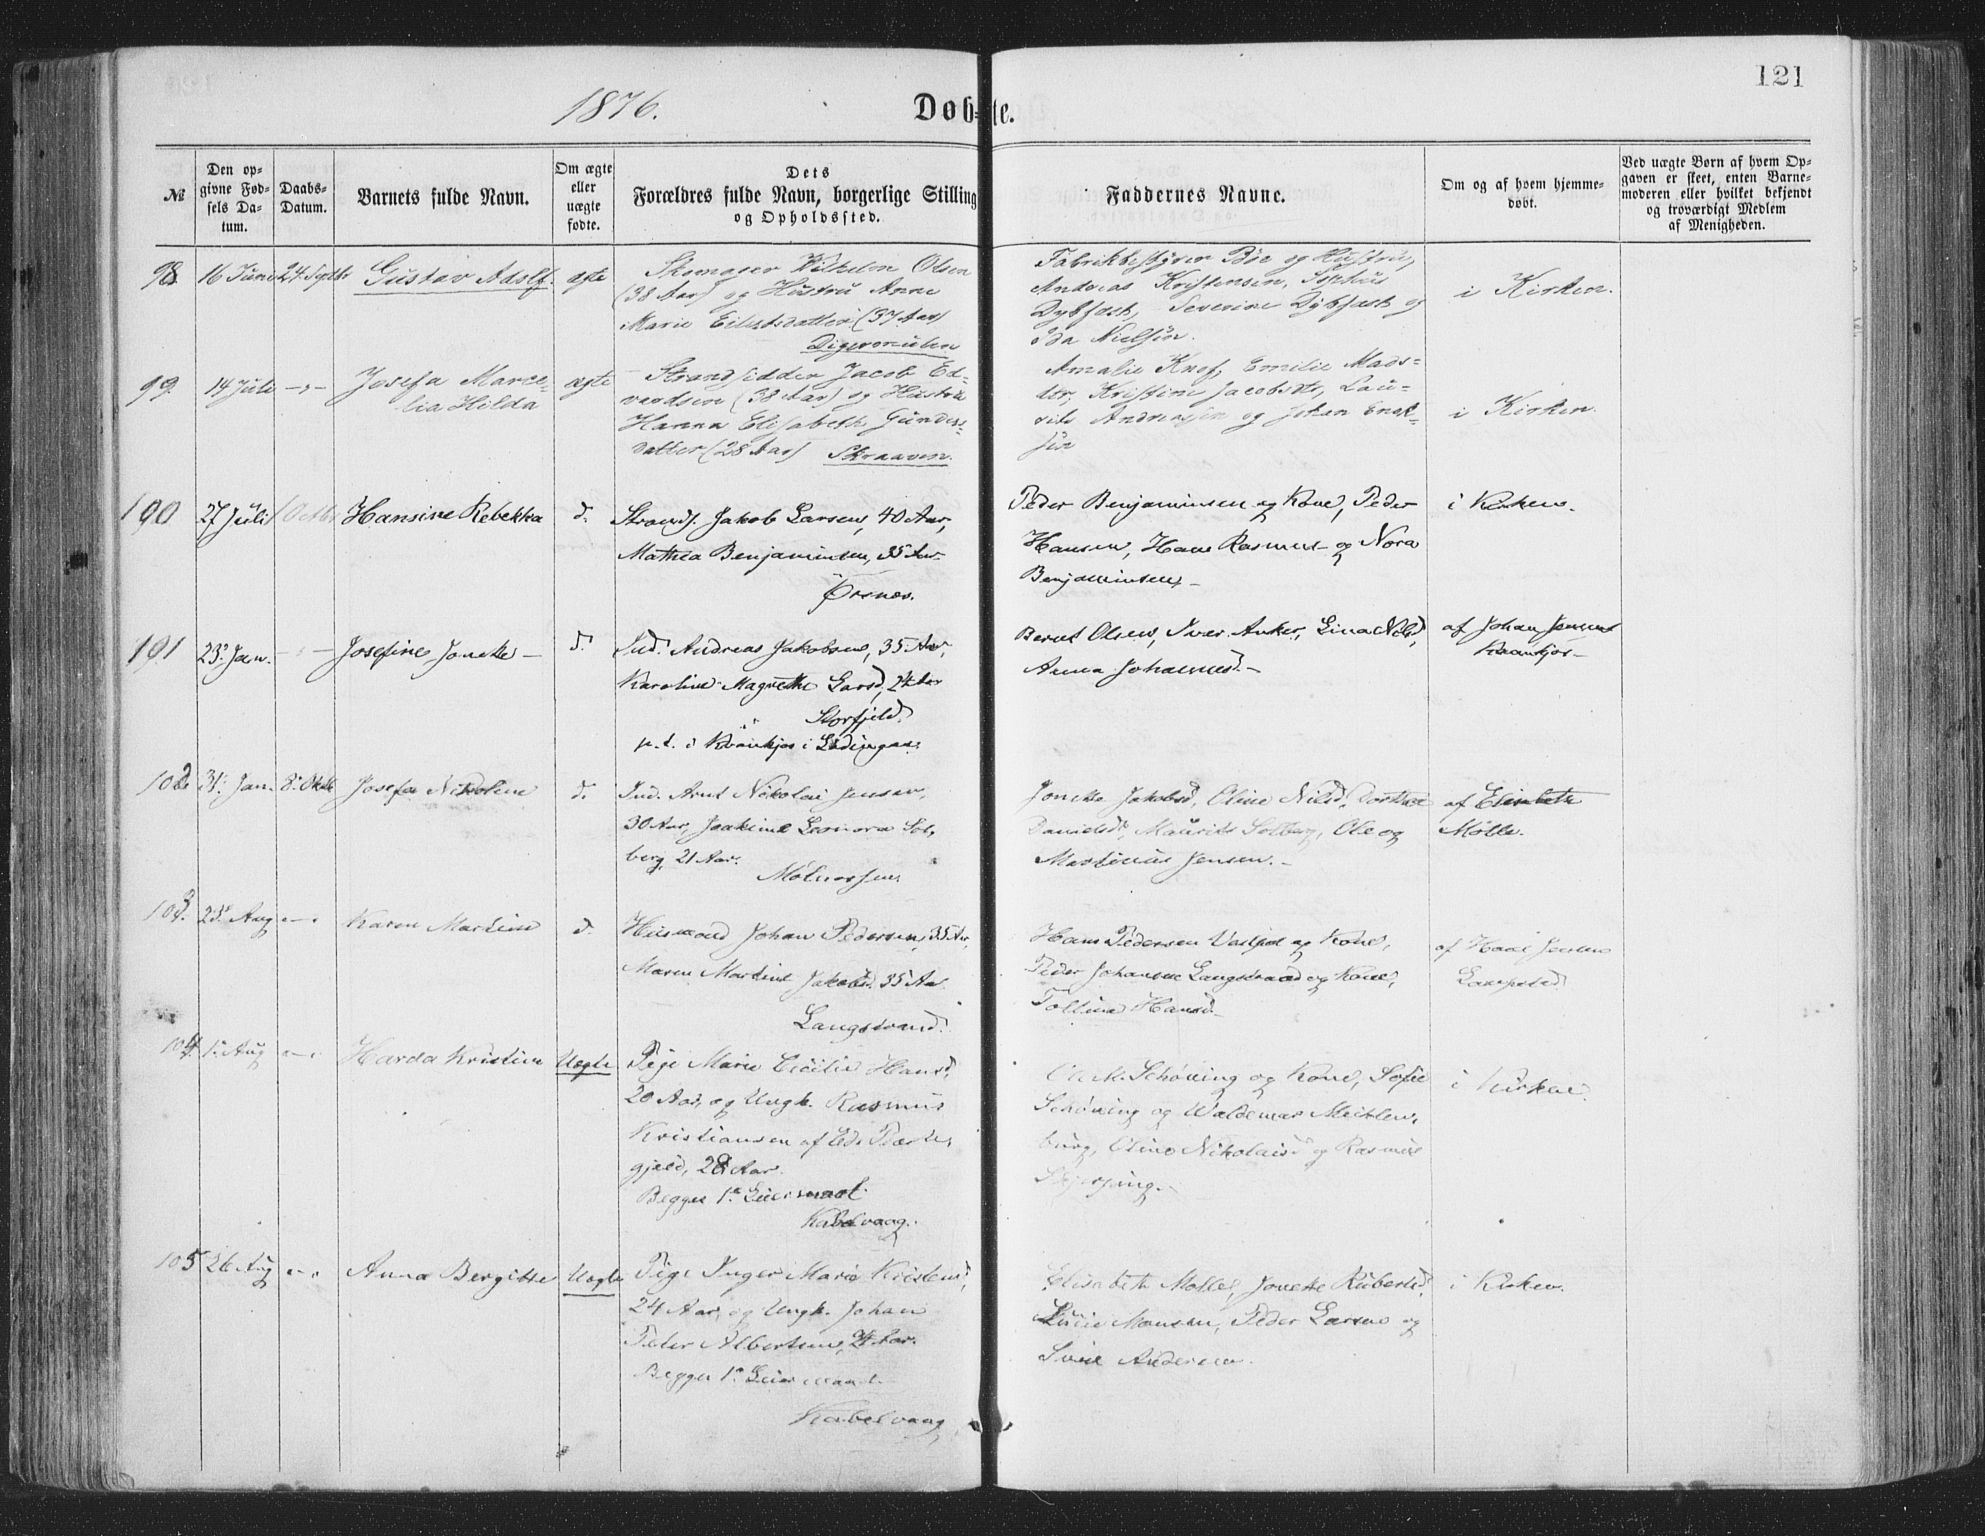 121
1876.
Døb-te.
№
Den op-
givne Fød-
sels Da-
tum.
Daabs-
Datum.
Barnets fulde Navn.
Om ægte
eller
uægte
fødte.
Dets
Forældres fulde Navn, borgerlige Stilling
og Opholdssted.
Faddernes Navne.
Om og af hvem hjemme-
døbt.
Ved uægte Børn af hvem Op-
gaven er skeet, enten Barne-
moderen eller hvilket bekjendt
og troværdigt Medlem
af Menigheden.
98 16 Juni 24 Septbr Gustav Adolf. ægte
Skomager Wilhelm Olsen
(38 Aar) og Hustru Anne
Marie Eilertsdatter (37 Aar)
Digermulen
Fabrikbestyrer Bøe og Hustru,
Andreas Kristensen, Sophus
Dybfest, Severine Dybfest og
Ida Nielsen.
i Kirken.
99. 14 Juli -,- Josefa Marce-
lia Hilda
ægte
Strandsidder Jacob Ed-
vardsen (38 Aar) og Hustru
Hanna Elisabeth Gunders-
datter (28 Aar) Skraaven.
Amalie Knof, Emilie Mads-
dtr, Kristine Jacobsdtr, Lau-
ritz Andreasen og Johan Enok-
sen
i Kirken.
100 27 Juli 1 Octbr Hansine Rebekka d.
Strands. Jakob Larsen, 40 Aar,
Mathea Benjaminsen, 35 Aar-
Ørsnes.
Peder Benjaminsen og Kone, Peder
Hansen, Hans Rasmus- og Nora
Benjaminsen,-
i Kirken.
101 23. Jan. -,- Josefine Jonette- d.
Ind. Andreas Jakobsen, 35 Aar,
Karoline Magrethe Larsd, 24 Aar
Storfjeld.
p.t. i Kvankjos i Lødingen.
Bernt Olsen, Iver Anker, Lina Nilsd,
Anna Johannesd.-
af Johan Jensen
Kvankjos-
102 31. Jan. 8. Oktbr Josefa Nikoline d.
Ind. Arnt Nikolai Jensen,
30 Aar, Joakime Leonora Sol,
berg, 21 Aar.
Molnarsen
Jonette Jakobsd, Oline Nilsd, Dorthea
Danielsd, Maurits Solberg, Ole og
Martinus Jensen.-
af Elisabeth
Mølle.
103. 23. Aug -,- Karen Martine d.
Huusmand Johan Pedersen, 35 Aar,
Maren Martine Jakobsd. 35 Aar.
Langstrand.
Hans Pedersen og Kone,
Peder Johansen Langstrand og Kone,
Tolline Hansd-
af Jensen
104. 1. Aug -,- Harda Kristine Uægte
Pige Marie Cicilie Hansd,
20 Aar, og Ungk. Rasmus
Kristiansen af Eds Præste,
gjeld, 28 Aar.
Begges 1ste Leiermaal.
Kabelvaag.
Schøning og Kone, Sofie
Schøning og Waldemar Meklen,
burg, Oline Nikolaisd og Rasmus
Skjerping.
i Kirken.
105 26 Aug -,- Anna Bergitte Uægte
Pige Inger Marie Kristensd,
24 Aar, og Ungk. Johan
Peter Albertsen, 24 Aar.
Begges 1ste Leiermaal.
Kabelvaag,
Elisabeth Mølle, Jonette Rubertsd,
Lucie Monsen, Peder Larsen og
Andersen.
i Kirken.